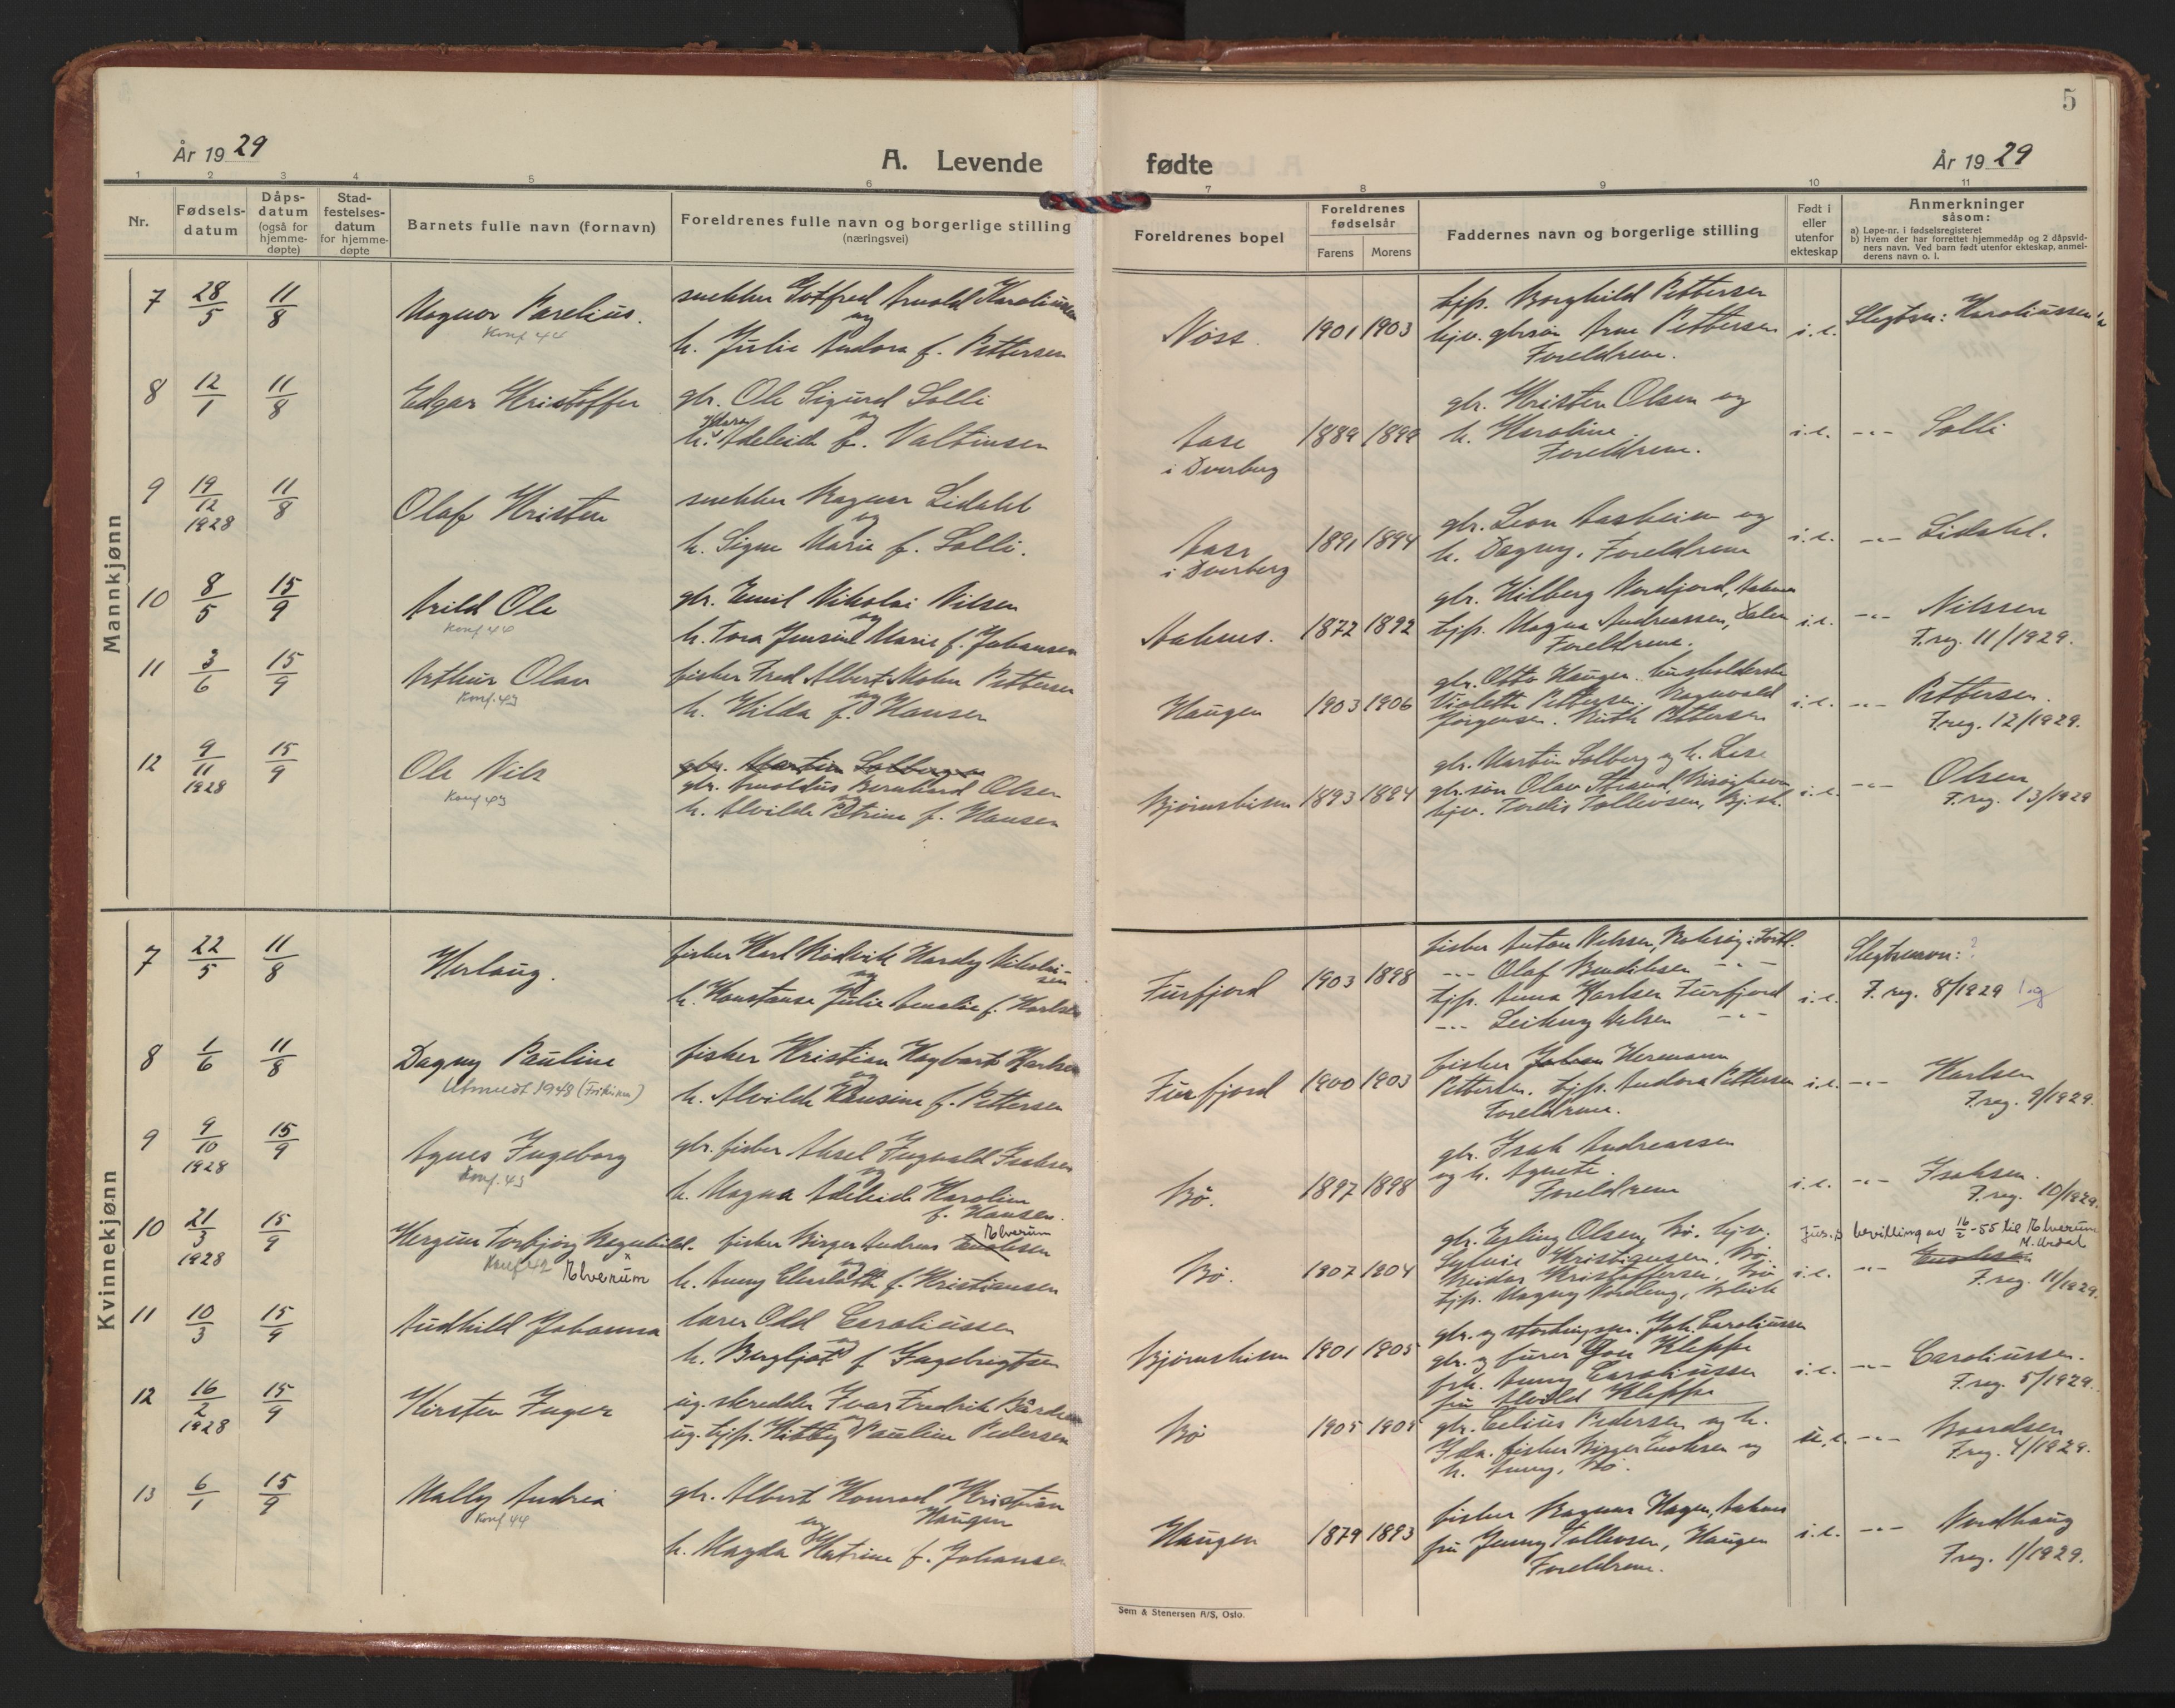 5
År 19 29
A. Levende
fødte
År 19 29
1 2 3 4 5 6 7 8 9 10 11
Nr.
Fødsels-
datum
Dåps-
datum
(også for
hjemme-
døpte)
Stad-
festelses-
datum
for hjemme-
døpte
Barnets fulle navn (fornavn)
Foreldrenes fulle navn og borgerlige stilling
(næringsvei)
Foreldrenes bopel
Foreldrenes
fødselsår
Farens Morens
Faddernes navn og borgerlige stilling
Født i
eller
utenfor
ekteskap
Anmerkninger
såsom:
a) Løpe-nr. i fødselsregisteret
b) Hvem der har forrettet hjemmedåp og 2 dåpsvid-
ners navn. Ved barn født utenfor ekteskap, anmel-
derens navn o. l.
Mannkjønn
7 28/5 11/8 Magnar Parelius.
Konf 44
snekker Gotfred Arnold Karoliussen
og
h. Julie Andora f. Pettersen
Nöss 1901 1903
tjp. Borghild Pettersen
tjv. gbrsön Arne Pettersen
Foreldrene.
i.e. Slegtsn: Karoliussen
8 12/1 11/8 Edgar Kristoffer
gbr. Ole Sigurd Solli
og
h. Adeleide f. Valtinsen
Aase
i Dverberg
1889 1899
gbr. Kristen Olsen og
h. Karoline
Foreldrene.
i.e. -"- Solli
9 19/12 1928 11/8 Olaf Kristen
snekker Ragnar Lidahl
og
h. Signe Marie f. Solli.
Aase
i Dverberg
1891 1894
gbr. Leon Aasheim og
h. Dagny. Foreldrene
i.e. -"- Lidahl.
10 8/5 15/9 Arild Ole
Konf 44
gbr. Emil Nikolai Nilsen
og
h. Tora Jensine Marie f. Johansen
Aaknes. 1872 1892
gbr. Hilberg Nordfjord, Aaknes
tjp. Magna Andreassen, Dalen
Foreldrene.
i.e. -"- Nilssen
F.reg. 11/1929.
11 3/6 15/9 Arthur Olav
Konf. 43
fisker Fred Albert Mohn Pettersen
og
h. Hilda f. Hansen
Haugen 1903 1906
gbr. Otto Haugen. husholderske
Violette Pettersen, Ragnvald
Jørgensen. Ruth Pettersen
i.e. -"- Pettersen.
F.reg. 12/1929.
12 9/11 1928 15/9 Ole Nils
Konf 43
gbr. Martin Solberg
gbr. Arnoldus Bernhard Olsen
og
h. Alvilde Petrine f. Hansen
Bjørnskinn 1893 1894
gbr. Martin Solberg og h. Lise
gbr.sön Olav Strand, Risöyhavn
tjv. Tordis Tollevsen, Bj.sk.
i.e. -"- Olsen
F.reg. 13/1929
Kvinnekjønn
7 22/5 11/8 Herlaug.
fisker Karl Rödvik Hardy Nikolai-
sen
og
h. Konstanse Julie Amalie f. Karlsen
Fürfjord 1903 1898
fisker Anton Nilssen,
-"- Olaf Bendiksen -"-
tjp. Anna Karlsen Fürfjord
-"- Leikny Nilsen -"-
i.e. Slegtsnavn: ?
F.reg. 8/1929
8 1/6 11/8 Dagny Pauline
Utmeldt 1948 (Frikirken)
fisker Kristian Hagbart Karlsen
og
h. Alvilde Hansine f. Pettersen
Fürfjord 1900 1903
fisker Johan Hermann
Pettersen. tjp. Andora Pettersen
Foreldrene.
i.e. -"- Karlsen
F.reg. 9/1929.
9 9/10 1928 15/9 Agnes Ingeborg
Konf. 43
gbr. fisker Aksel Ingvald Isaksen
og
h. Magna Adeleide Karoline
f. Hansen.
Bö. 1897 1898
gbr. Isak Andreassen
og h. Agnete.
Foreldrene
i.e. -"- Isaksen.
F.reg. 10/1929.
10 21/3 1928 15/9 Hergun Torbjörg Ragnhild.
Konf 42 x Elverum
fisker Birger Andreas Enoksen Elverum
og
h. Anny f. Kristiansen
Bö. 1907 1904
gbr. Erling Olsen, Bö. tjv.
Sylvie Kristiansen, Bö.
Reidar Kristoffersen, Bö
tjp. Magny Nordeng, Bleik
i.e. Jus. bevilling av 16/2-55 til Elverum
M. Urdal
-"- Enoksen
F.reg. 11/1929.
11 10/3 15/9 Audhild Johanna
lærer Odd Caroliussen
og
h. Bergljot f. Ingebrigtsen
Bjørnskinn 1901 1905
gbr. og stortingsm. Joh. Caroliussen
gbr. og furer Kleppe
frk. Anny Caroliussen
fru Alvild Kleppe
i.e. -"- Caroliussen.
F.reg. 5/1929.
12 16/2 1928 15/9 Kirsten Inger
ug. skredder Ivar Fredrik Bårdsen
og
ug. tjp. Kitty Pauline Pedersen
Bö 1905 1905
gbr. Celius Pedersen og h.
Ida. fisker Birger Enoksen og
h. Anny, Bö.
u.e. -"- Baardsen
F.reg. 4/1929.
13 6/1 15/9 Mally Andrea
Konf 44
gbr. Albert Konrad Kristian
Haugen
og
h. Magda Katrine f. Johansen
Haugen 1879 1893
fisker Ragnar Hagen, Aaknes
fru Jenny Tollevsen, Haugen
Foreldrene.
i.e. -"- Nordhaug
F.reg. 1/1929.
Sem & Stenersen A/S, Oslo.